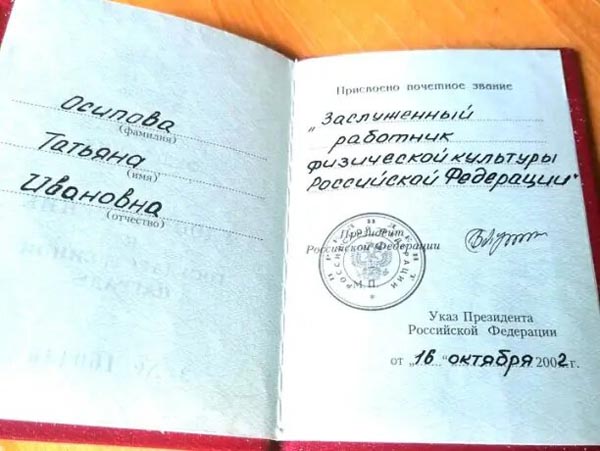 Осипова
(фамилия)
Татьяна
(имя)
Ивановна
(отчество)
Присвоено почетное звание
„Заслуженный
работник
физической культуры
Российской Федерации"
Президент
Российской Федерации
М.П.
Указ Президента
Российской Федерации
от „16 октября 2002 г.